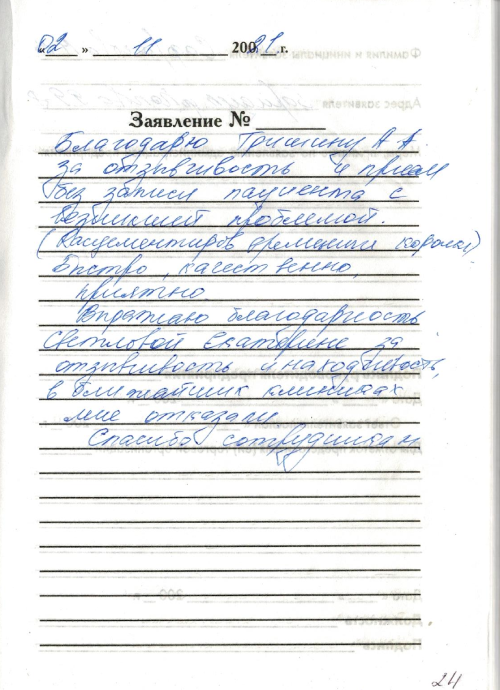 «02» 11 20021 г.
Заявление №
Благодарю Гришину А А.
за отзывчивость и прием
без записи пациента с
возникшей проблемой.
(Расцементиров временная коронка)
Быстро, качественно,
приятно
Выражаю благодарность
Светловой Екатерине за
отзывчивость и находчивость,
в ближайших клиниках
мне отказали
Спасибо сотрудникам
24